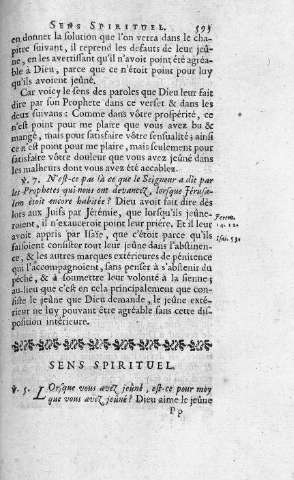 SENS SPIRITUEL. 593
en donnant la solution que l'on verra dans le cha-
pitre suivant, il reprend les défauts de leur jeû-
ne, en les avertissant qu'il n'avoit point été agréa-
ble à Dieu, parce que ce n'étoit point pour luy
qu'ils avoient jeûné.
Car voicy le sens des paroles que Dieu leur fait
dire par son Prophete dans ce verset & dans les
deux suivans : Comme dans vôtre prospérité, ce
n'est point pour me plaire que vous avez bu &
mangé, mais pour satisfaire vôtre sensualité ; ainsi
ce n'est point pour me plaire, mais seulement pour
satisfaire vôtre douleur que vous avez jeûné dans
les malheurs dont vous avez été accablez.
℣. 7. N'est-ce pas là ce que le Seigneur a dit par
les Prophetes qui nous ont devancez, lorsque Jérusa-
lem étoit encore habitée ? Dieu avoit fait dire dés
lors aux Juifs par Jérémie, que lorsqu'ils jeûne-
roient, il n'exauceroit point leur priére. Et il leur
Jerem.
14. 12.
avoit appris par Isaïe, que c'étoit parce qu'ils
Isai. 58.
faisoient consister tout leur jeûne dans l'abstinen-
ce, & les autres marques extérieures de pénitence
qui l'accompagnoient, sans penser à s'abstenir du
péché, & à soumettre leur volonté à la sienne ;
au lieu que c'est en cela principalement que con-
siste le jeûne que Dieu demande, le jeûne exté-
rieur ne luy pouvant être agréable sans cette dis-
position intérieure.
SENS SPIRITUEL.
℣. 5. LOrsque vous avez jeûné, est-ce pour moy
que vous avez jeûné ? Dieu aime le jeûne
Pp